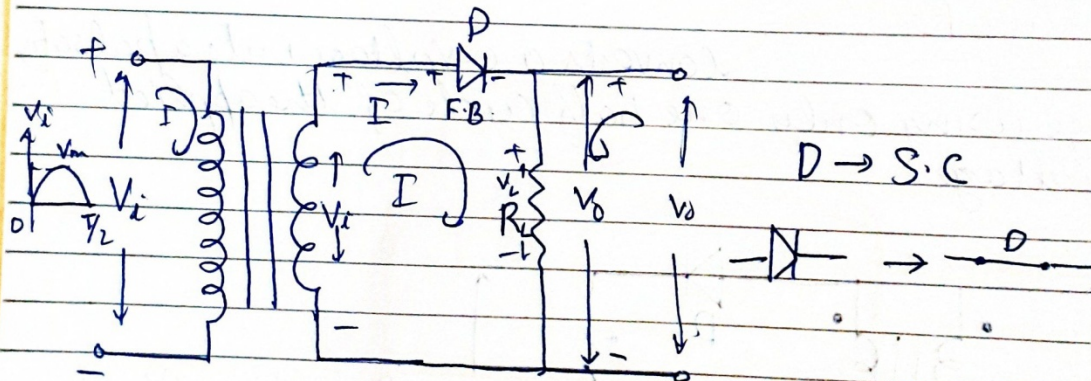 D
+
+ I → + -
F.B.
+
I
Vi
Vm
Vi
0
T/2
Vi
I
+
VL
RL
-
V0
V0
D → S.C
→ D
-
-
-